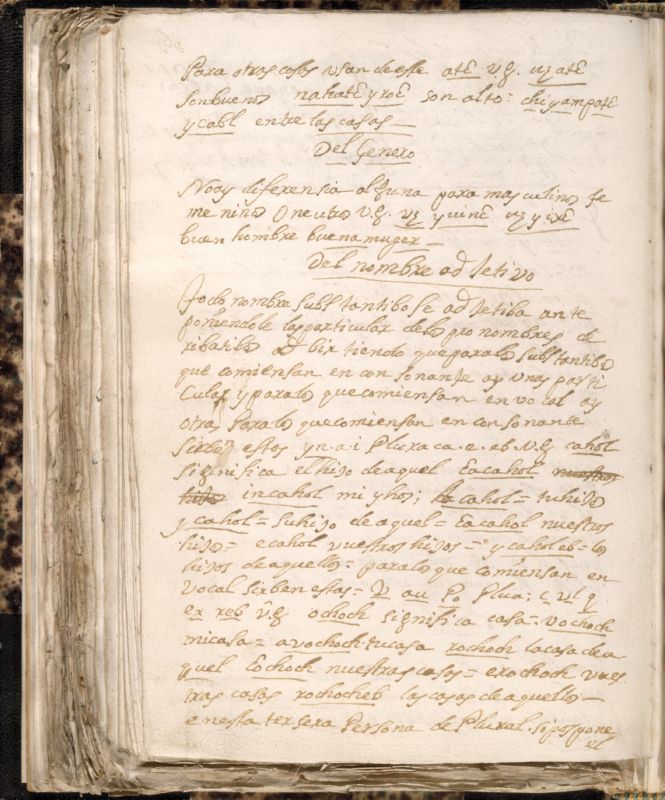 Para otras cosas usan de este atē v.g. uz atē
son buenos nahatē y xoē son alto: chiyampatē
y cabl entre las casas
Del Genero
No ay diferensia alguna para masculino fe
menino o neutro v.g. uz y uinē uz y ixē
buen hombre buena muger
Del nombre adjetivo
Todo nombre substantibo se adjetiba ante
poniendole las particular delos pro nombres de
ribatibos adbirtiendo que para los substantibos
que comiensan en consonante ay unas parti
culas y para los que comiensan en vocal ay
otras Para los que comiensan en consonante
sirben estos yn. a. i Plura ca. e. eb. v.g. cahol
significa el hijo de aquel Cacahol
incahol mi yho; acahol = tu hijo
y cahol = su hijo de aquel = Cacahol nuestros
hijos = ecahol vuestros hijos = ycaholeb = los
hijos de aquellos = para los que comiensan en
vocal sirben estas = V au
ex reb v.g. ochoch significa casa = vochoch
mi casa = avochoch tu casa rochoch la casa de a
quel Cochoch nuestras casas = exochoch vues
tras casas rochocheb las casas de aquellos
en esta tersera Persona de Plural. si pospone
el